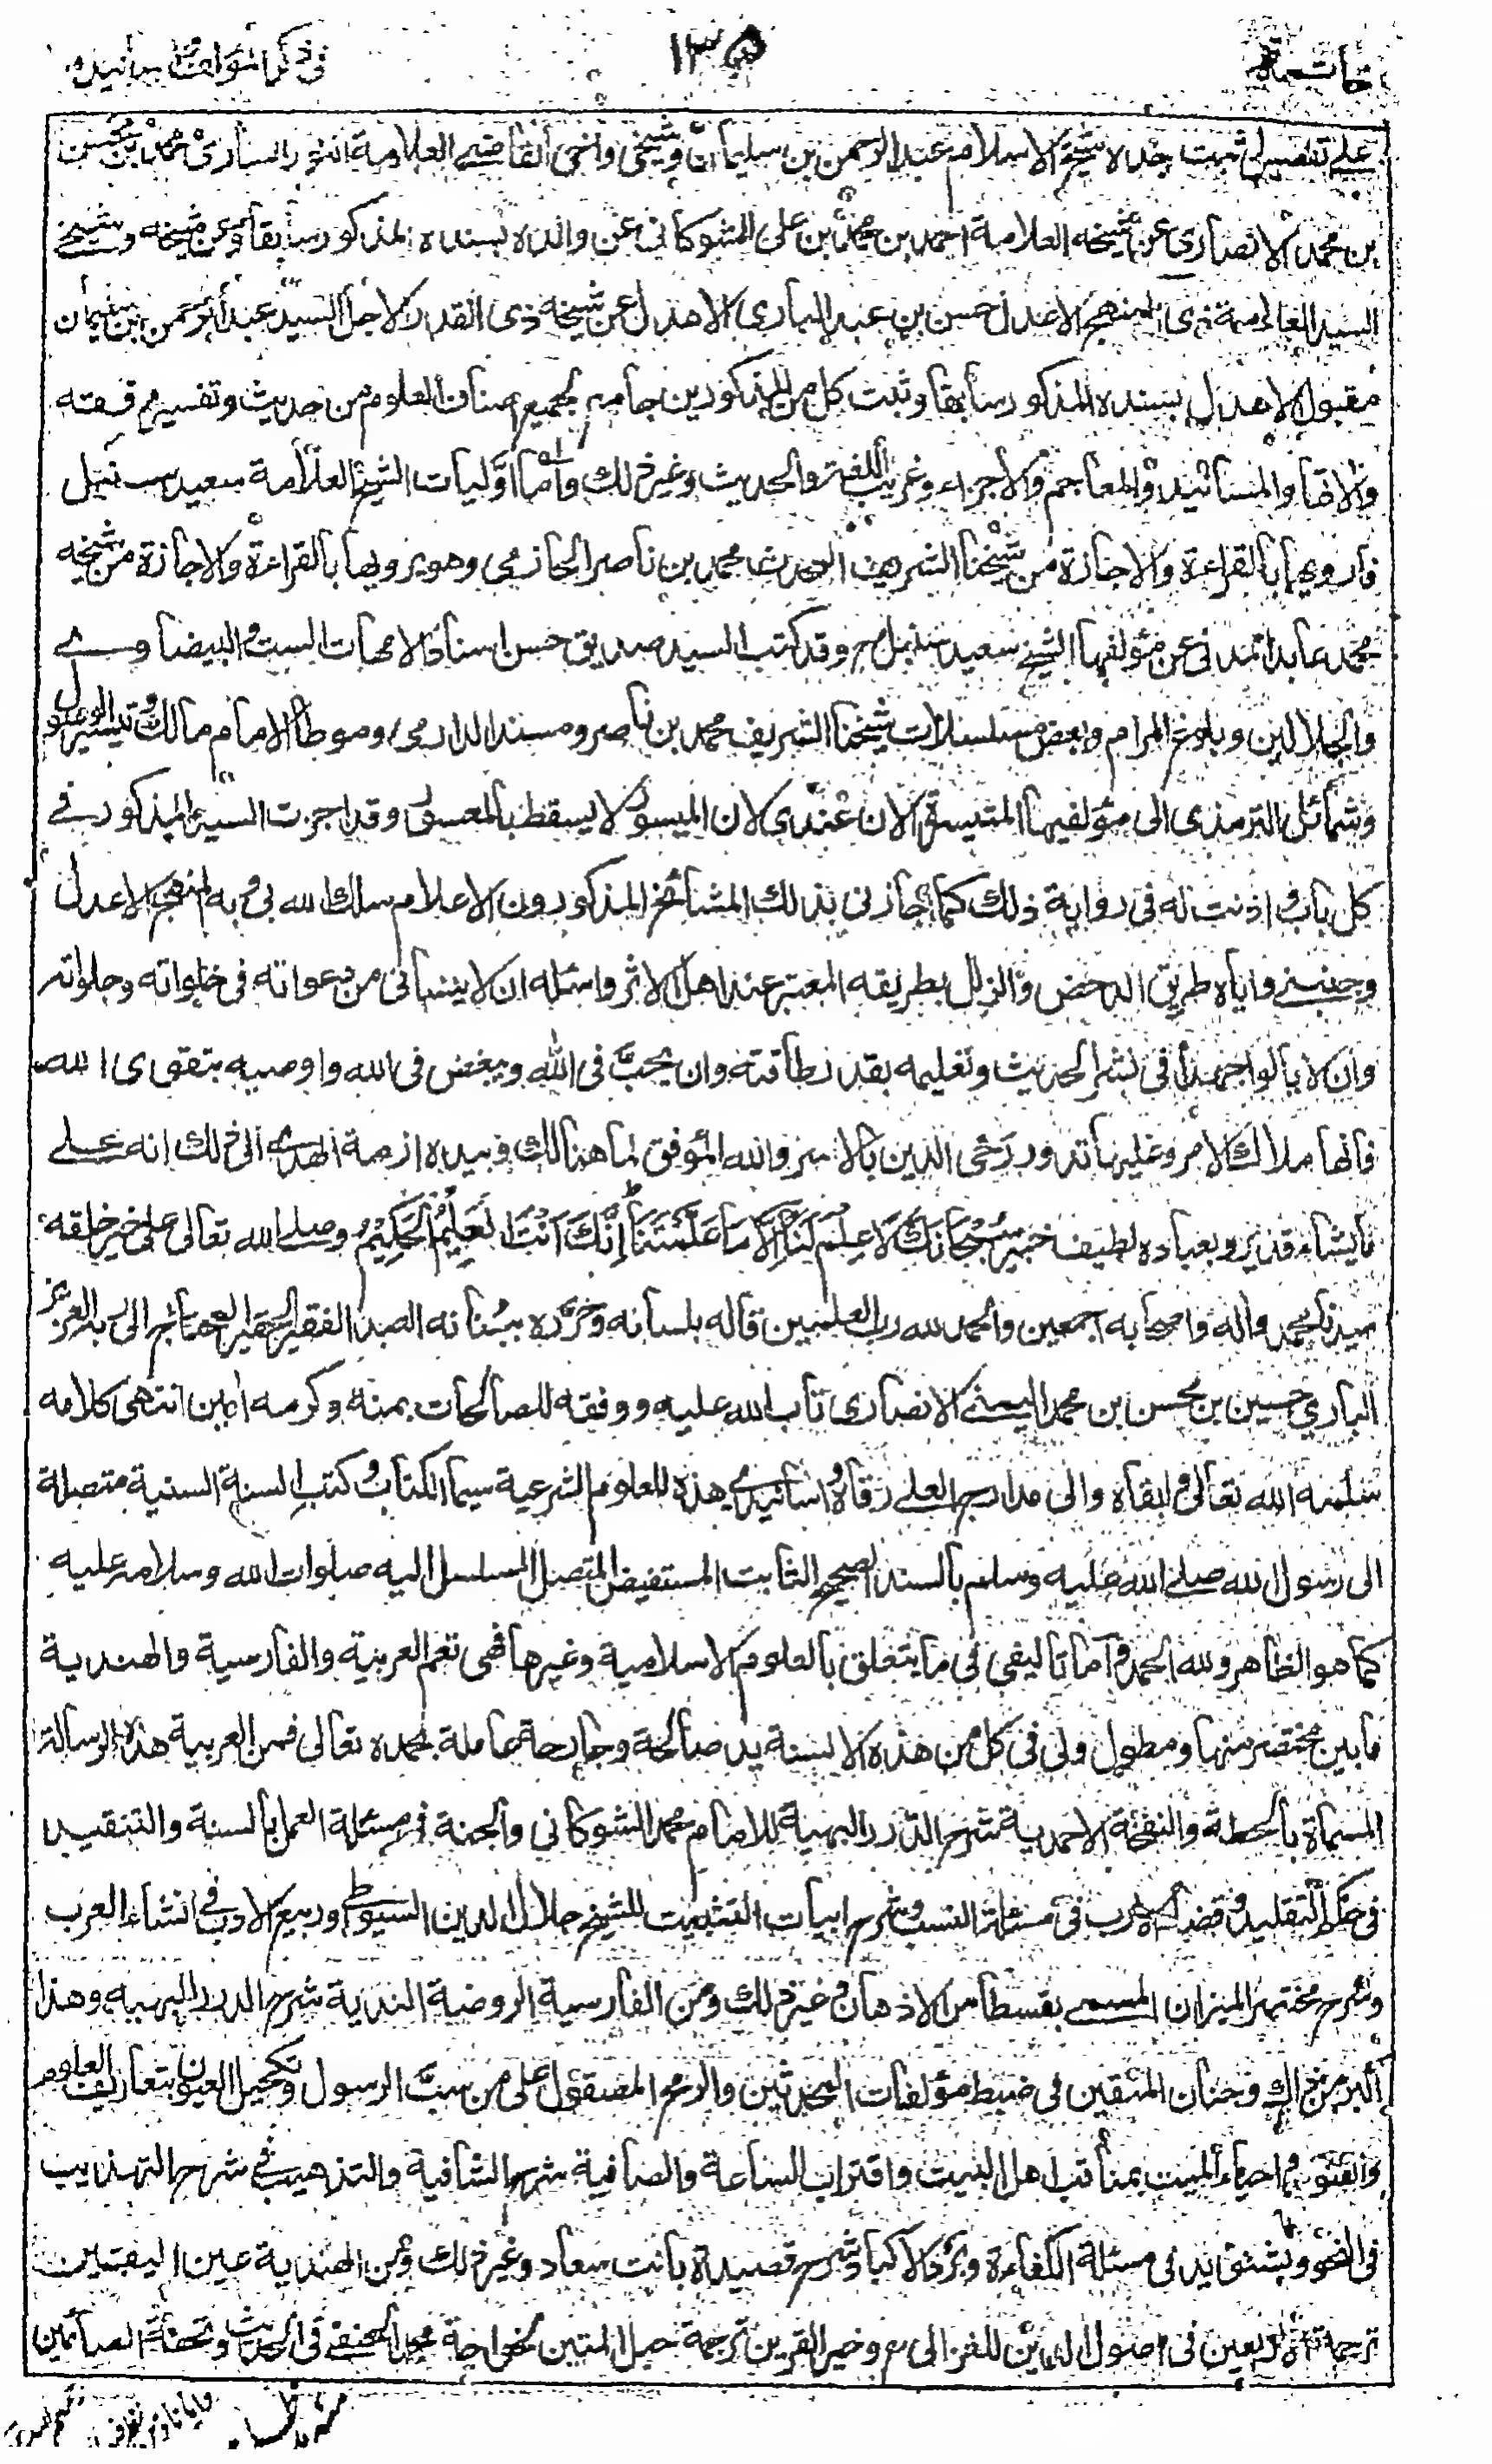 خاتمة
١٣٥
في ذكر المؤلف وأسانيده
على تفصيل ثبت جده لا شيخ الاسلام عبد الرحمن بن سليمان وشيخي واخي القاضي العلامة محمد بن محسن
بن محمد الانصاري عن شيخه العلامة احمد بن محمد بن علي الشوكاني عن والده بسنده المذكور سابقا وعن شيخه وشيخي
السيد العلامة ذي المنهج الاعدل حسن بن عبد الباري الاهدل عن شيخه ذي القدر الاجل السيد عبد الرحمن ابن سليمان
مقبول الاهدل بسنده المذكور سابقا وثبت كل من المذكورين جامع لجميع اصناف العلوم من حديث وتفسير وفقه
والات والمسانيد والمعاجم والاجزاء وغريب اللغة والحديث وغير ذلك واما اوليات الشيخ العلامة سعيد سنبل
فارويها بالقراءة والاجازة من شيخنا الشريف المحدث محمد بن ناصر الحازمي وهو يرويها بالقراءة والاجازة من شيخه
محمد عابد السندي عن مؤلفها الشيخ سعيد سنبل رح وقد كتب السيد صديق حسن اسناد الامهات الست والبيضاوي
والجلالين وبلوغ المرام وبعض مسلسلات شيخنا الشريف محمد بن ناصر ومسند الدارمي وموطأ الامام مالك وتيسير الوصول
وشمائل الترمذي الى مؤلفيها المتيسرة الان عندي لان الميسور لا يسقط بالمعسور وقد اجزت السيد المذكور في
كل باب واذنت له في رواية ذلك كما اجازني بذلك المشائخ المذكورون الاعلام سلك الله بي وبه المنهج الاعدل
وجنبني واياه طريق الدحض والزلل بطريقه المعتبر عند اهل الاثر واسئله ان لا ينساني من دعواته في خلواته وجلواته
وان لا يألو اجهدا في نشر الحديث وتعليمه بقدر طاقته وان يحب في الله ويبغض في الله واوصيه بتقوى الله
فانها ملاك الامر وعليها تدور رحى الدين بالاسر والله الموفق لما هنالك وبيده ازمة الهدى الى ذلك انه على
ما يشاء قدير وبعباده لطيف خبير سُبْحَانَكَ لَا عِلْمَ لَنَا إِلَّا مَا عَلَّمْتَنَا إِنَّكَ أَنْتَ الْعَلِيمُ الْحَكِيمُ وصلى الله تعالى على خير خلقه
سيدنا محمد واله واصحابه اجمعين والحمد لله رب العلمين قاله بلسانه وحرره ببنانه العبد الفقير الحقير المحتاج الى ربه العزيز
الباري حسين بن محسن بن محمد اليمني الانصاري تاب الله عليه ووفقه للصالحات بمنه وكرمه امين انتهى كلامه
سلمه الله تعالى وابقاه والى مدارج العلى رقاه واسانيدي هذه للعلوم الشرعية سيما الكتاب وكتب السنة السنية متصلة
الى رسول الله صلى الله عليه وسلم بالسند الصحيح الثابت المستفيض المتصل المسلسل اليه صلوات الله وسلامه عليه
كما هو الظاهر ولله الحمد واما تاليفي في ما يتعلق بالعلوم الاسلامية وغيرها فهي تعم العربية والفارسية والهندية
ما بين مختصر منها ومطول ولي في كل من هذه الالسنة يد صالحة وجارحة عاملة بحمده تعالى فمن العربية هذه الرسالة
المسماة بالحطة والنفحة الاحمدية شرح الدرر البهية للامام محمد الشوكاني والجنة في مسئلة العمل بالسنة والتنقيد
في حكم التقليد وقضاء الارب في مسئلة النسب وشرح ابيات التثبيت للشيخ جلال الدين السيوطي وربيع الادب في انشاء العرب
وشرح مختصر الميزان المسمى بقسطاس الاذهان وغير ذلك ومن الفارسية الروضة الندية شرح الدرر البهية وهذا
اكبر من ذاك وجنان المتقين في ضبط مؤلفات المحدثين والرمح المصقول على من سب الرسول وتكحيل العيون بتعاريف العلوم
والفنون واحياء الميت بمناقب اهل البيت واقتراب الساعة والصافية شرح الشافية والتذهيب في شرح التهذيب
في النحو وبشنويد في مسئلة الكفاءة وبرد الاكباد شرح قصيدة بانت سعاد وغير ذلك ومن الهندية عين اليقين
ترجمة الاربعين في اصول الدين للغزالي رح وخير القرين ترجمة حبل المتين لخواجة محمد الحنفي في الحديث وتحفة الصائمين